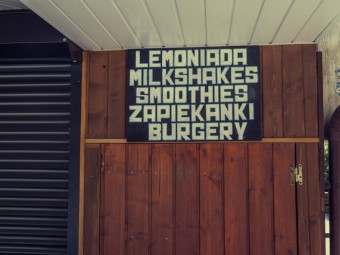 LEMONIADA
MILKSHAKES
SMOOTHIES
ZAPIEKANKI
BURGERY